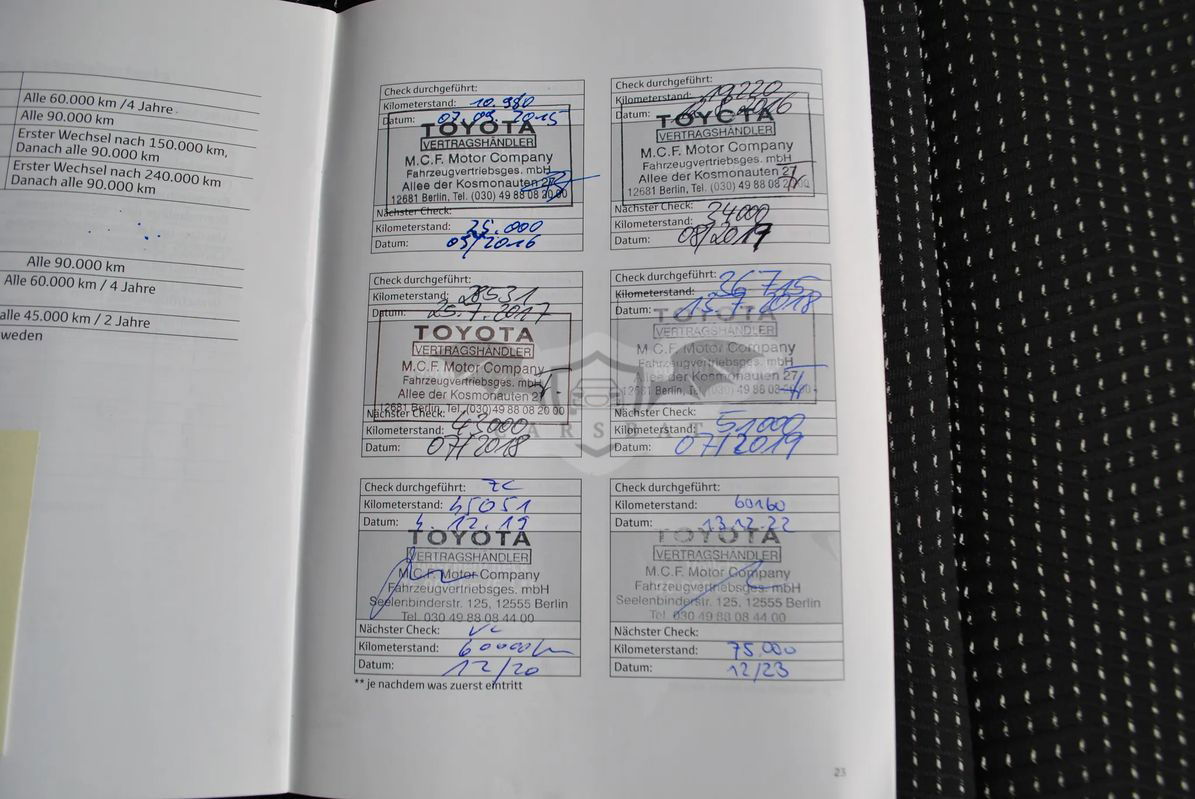 Alle 60.000 km /4 Jahre
Alle 90.000 km
Erster Wechsel nach 150.000 km,
Danach alle 90.000 km
Erster Wechsel nach 240.000 km
Danach alle 90.000 km
Alle 90.000 km
Alle 60.000 km / 4 Jahre
alle 45.000 km / 2 Jahre
weden
Check durchgeführt:
Kilometerstand: 10.980
Datum: 07.09.2015
TOYOTA
VERTRAGSHÄNDLER
M.C.F. Motor Company
Fahrzeugvertriebsges. mbH
Allee der Kosmonauten 27
12681 Berlin, Tel. (030) 49 88 08 20 00
Nächster Check:
Kilometerstand: 25.000
Datum: 09/2016
Check durchgeführt:
Kilometerstand: 19220
Datum: 2016
TOYOTA
VERTRAGSHÄNDLER
M.C.F. Motor Company
Fahrzeugvertriebsges. mbH
Allee der Kosmonauten 27
12681 Berlin, Tel. (030) 49 88 08 20 00
Nächster Check:
Kilometerstand: 34000
Datum: 08/2017
Check durchgeführt:
Kilometerstand: 28531
Datum: 25.7.2017
TOYOTA
VERTRAGSHÄNDLER
M.C.F. Motor Company
Fahrzeugvertriebsges. mbH
Allee der Kosmonauten 27
12681 Berlin, Tel. (030) 49 88 08 20 00
Nächster Check:
Kilometerstand: 43000
Datum: 07/2018
Check durchgeführt:
Kilometerstand: 36715
Datum: 13.7.2018
TOYOTA
VERTRAGSHÄNDLER
M.C.F. Motor Company
Fahrzeugvertriebsges. mbH
Allee der Kosmonauten 27
12681 Berlin, Tel. (030) 49 88 08 20 00
Nächster Check:
Kilometerstand: 51000
Datum: 07/2019
Check durchgeführt:
Kilometerstand: 45051
Datum: 4.12.19
TOYOTA
VERTRAGSHÄNDLER
M.C.F. Motor Company
Fahrzeugvertriebsges. mbH
Seelenbinderstr. 125, 12555 Berlin
Tel. 030 49 88 08 44 00
Nächster Check:
Kilometerstand: 60000km
Datum: 12/20
Check durchgeführt:
Kilometerstand: 60160
Datum: 13.12.22
TOYOTA
VERTRAGSHÄNDLER
M.C.F. Motor Company
Fahrzeugvertriebsges. mbH
Seelenbinderstr. 125, 12555 Berlin
Tel. 030 49 88 08 44 00
Nächster Check:
Kilometerstand: 75.000
Datum: 12/23
** je nachdem was zuerst eintritt
23